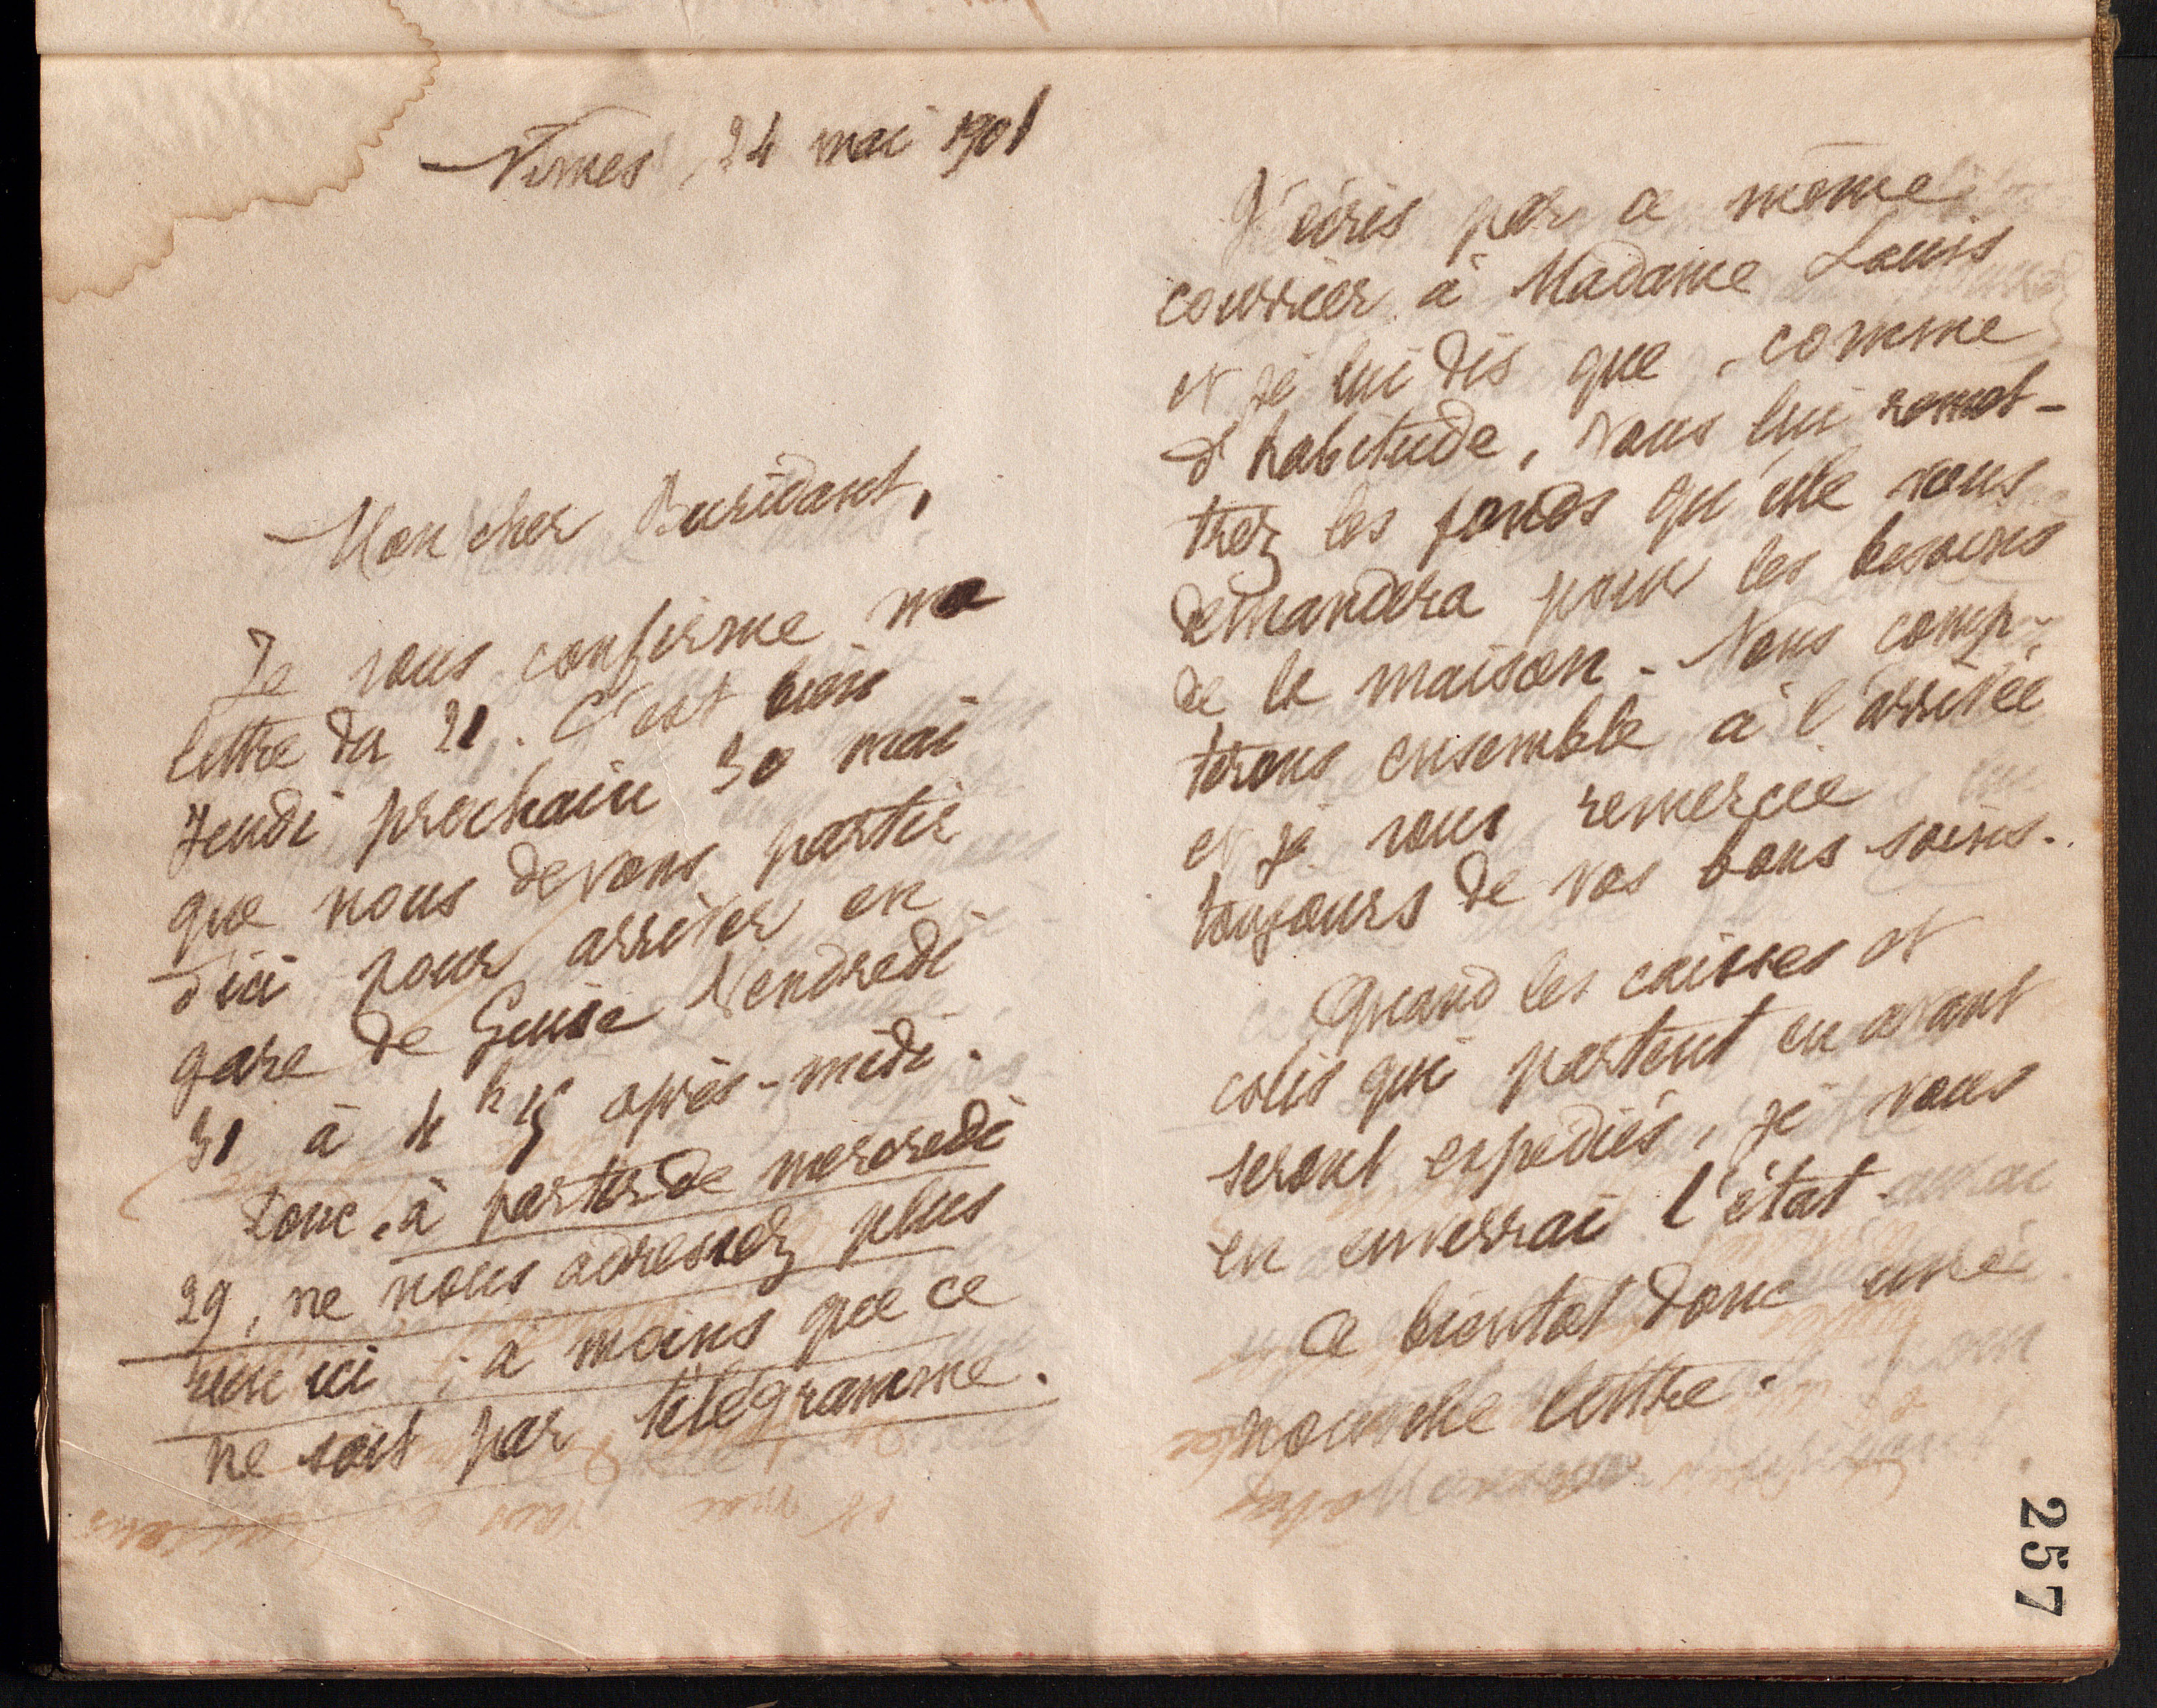 Nimes, 24 mai 1901
Mon cher Buridant,
Je vous confirme ma
lettre du 21. C'est bien
Jeudi prochain 30 mai
que nous devons partir
d'ici pour arriver en
gare de Guise Vendredi
31 à 4 h 15 après-midi.
Donc, à partir de mercredi
29, ne nous adressez plus
rien ici, à moins que ce
ne soit par télégramme.
J'écris par ce même
courrier à Madame Louis
et je lui dis que, comme
d'habitude, vous lui remet-
trez les fonds qu'elle vous
demandera pour les besoins
de la maison. Nous comp-
terons ensemble à l'arrivée
et je vous remercie
toujours de vos bons soins.
Quand les caisses et
colis qui partent en avant
seront expédiés, je vous
en enverrai l'état.
A bientôt donc une
nouvelle lettre.
257